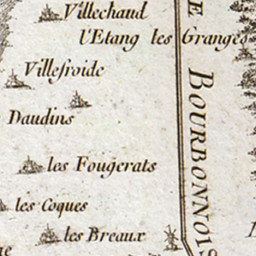 Villechaud
l'Etang les Granges
Villefroide
Daudins
les Fougerats
les Coques
les Breaux
BOURBONNOIS